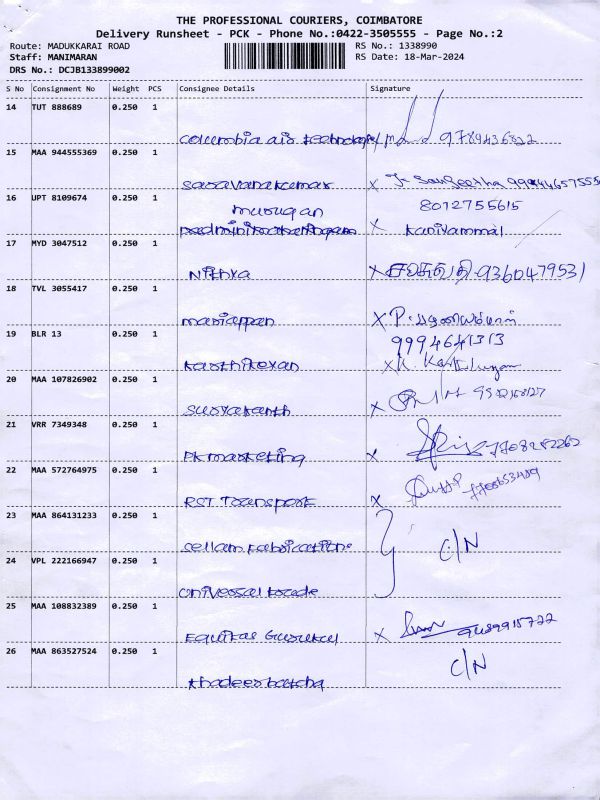 THE PROFESSIONAL COURIERS, COIMBATORE
Delivery Runsheet - PCK - Phone No.:0422-3505555 - Page No.:2
Route: MADUKKARAI ROAD RS No.: 1338990
Staff: MANIMARAN RS Date: 18-Mar-2024
DRS No.: DCJB133899002
S No Consignment No Weight PCS Consignee Details Signature
14 TUT 888689 0.250 1
columbia air technologie 9789436822
15 MAA 944555369 0.250 1
saravanakumar x J. Sangeetha 99944657555
16 UPT 8109674 0.250 1 8072755615
murugan
x Kaniyammal
17 MYD 3047512 0.250 1
Nithya x 9360479531
18 TVL 3055417 0.250 1
mariappan x P.
19 BLR 13 0.250 1 9994641313
karthikeyan x K.
20 MAA 107826902 0.250 1
suryakanth x
21 VRR 7349348 0.250 1
PK marketing x 7708282262
22 MAA 572764975 0.250 1
RST Transport x
23 MAA 864131233 0.250 1
sellam fabrications C/N
24 VPL 222166947 0.250 1
universal trade
25 MAA 108832389 0.250 1
Equitas x
26 MAA 863527524 0.250 1 C/N
khadeerbatcha